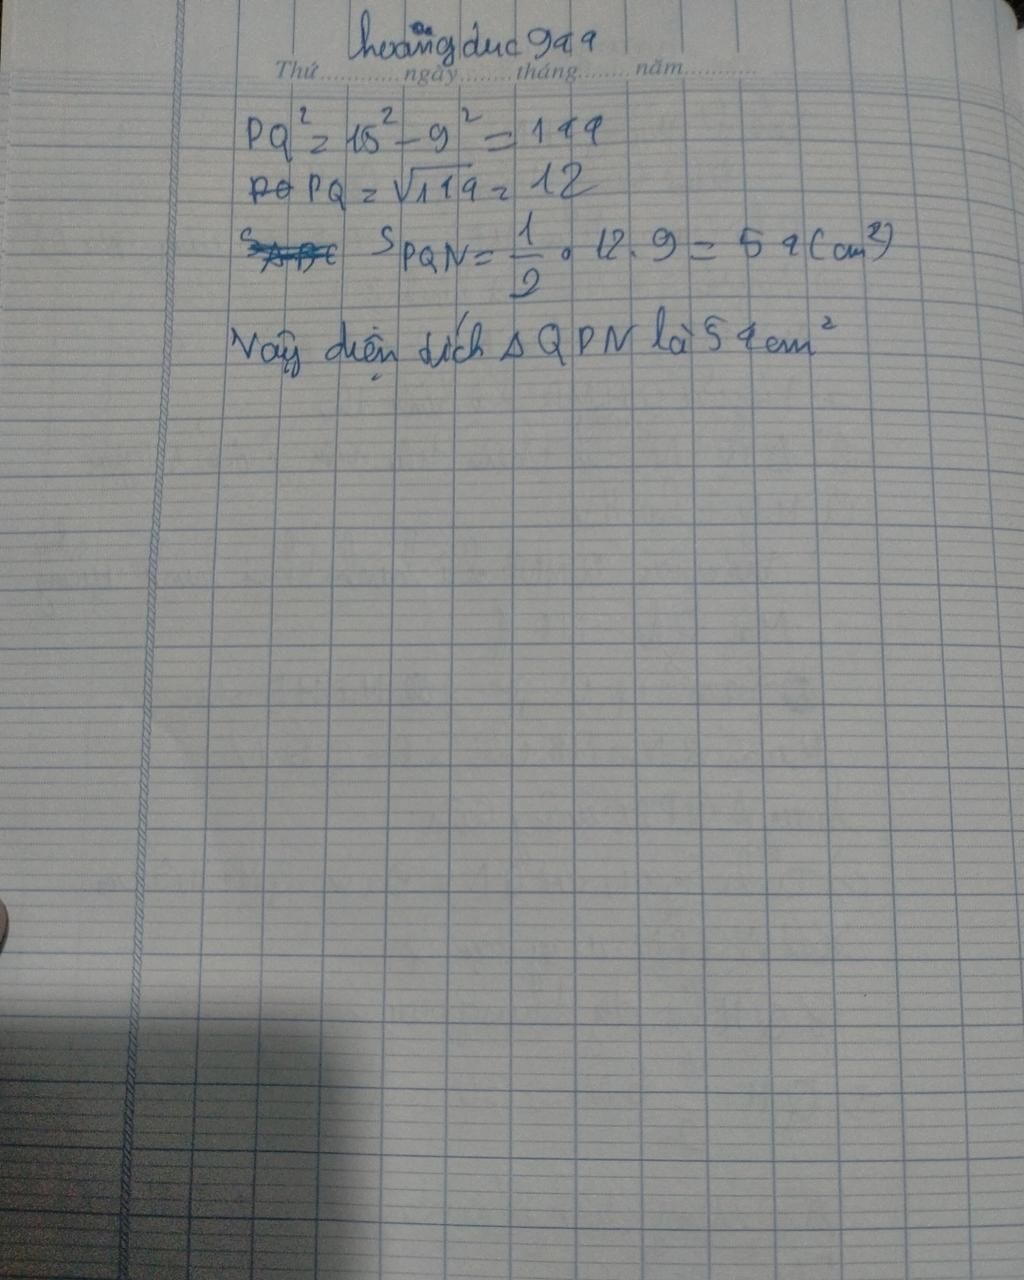 hoàng đuc 9a4
Thứ............ngày........tháng........năm............
PQ² = 15² - 9² = 144
PQ = √144 = 12
S PQN = 1/2 . 12 . 9 = 54 (cm²)
Vậy diện tích Δ QPN là 54 cm²